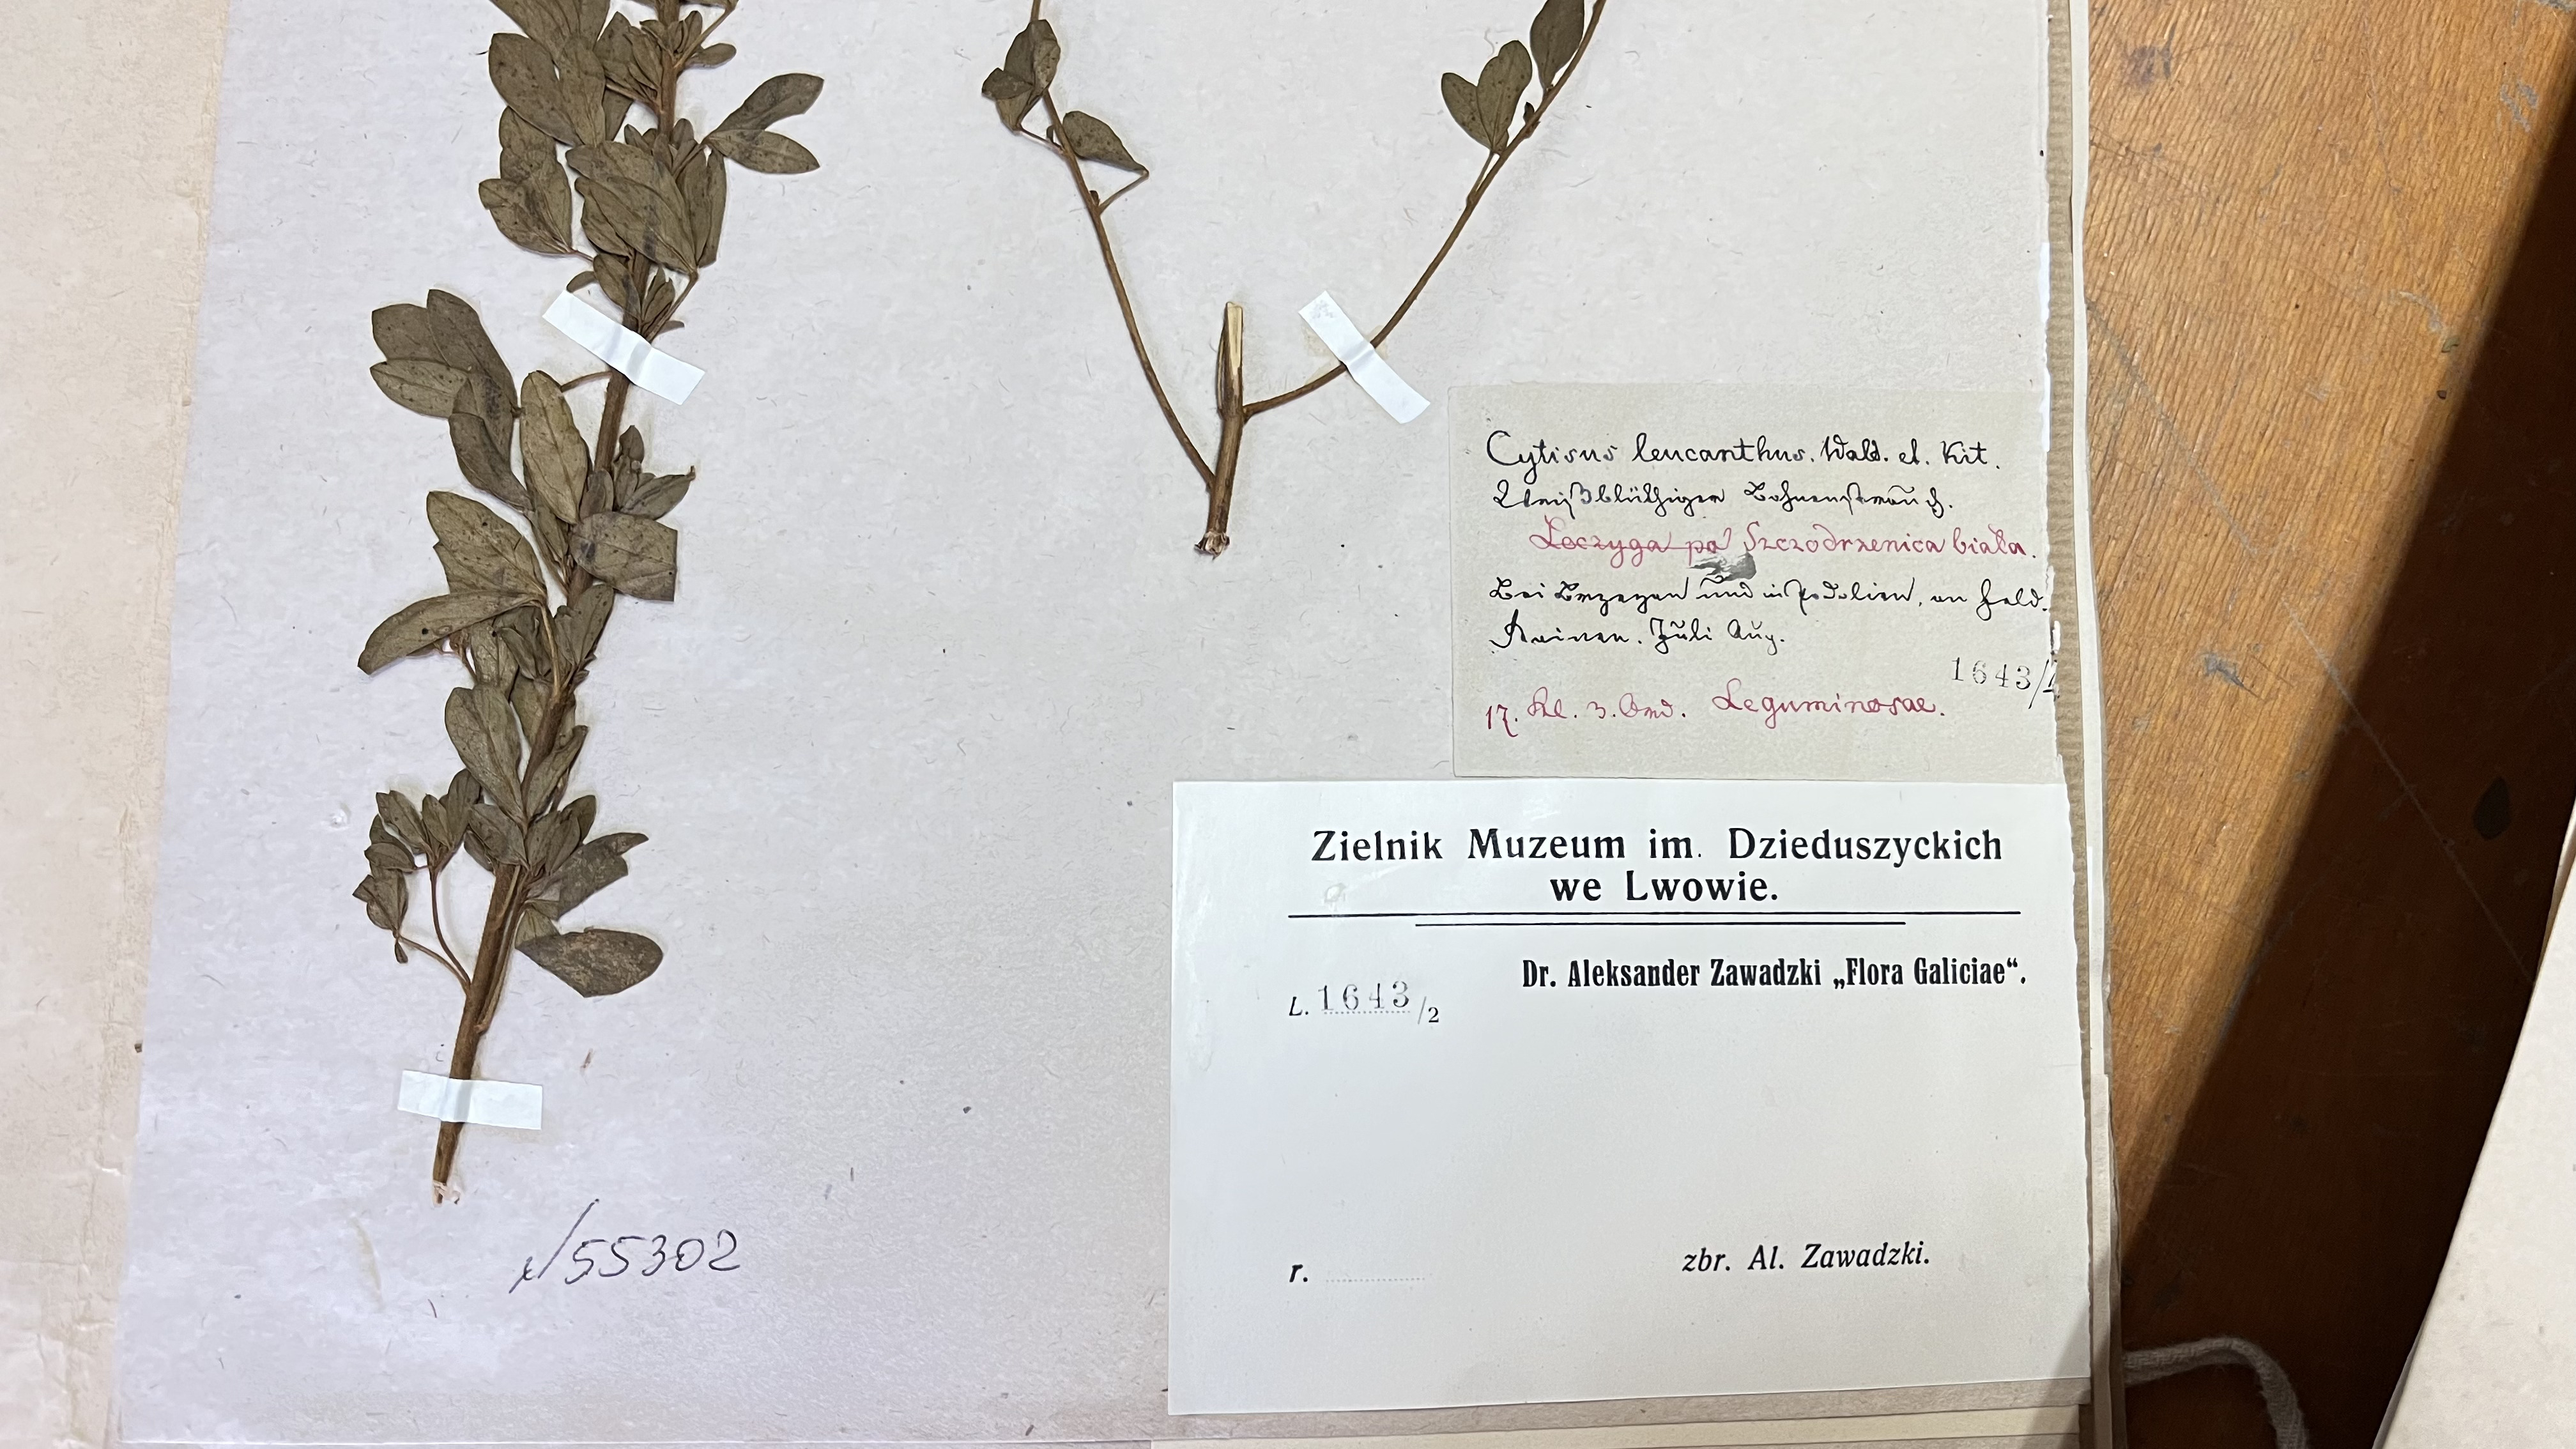 Cytisus leucanthus. Wald. et. Kit.
Weißblüthiger Bohnenstrauch.
Szczodrzenica biała.
Bei Brzezan und in Podolien, an Feld-
Rainen. Juli Aug.
1643/
17. Kl. 3. Ord. Leguminosae.
Zielnik Muzeum im. Dzieduszyckich
we Lwowie.
Dr. Aleksander Zawadzki „Flora Galiciae“.
L. 1643/2
r. zbr. Al. Zawadzki.
55302